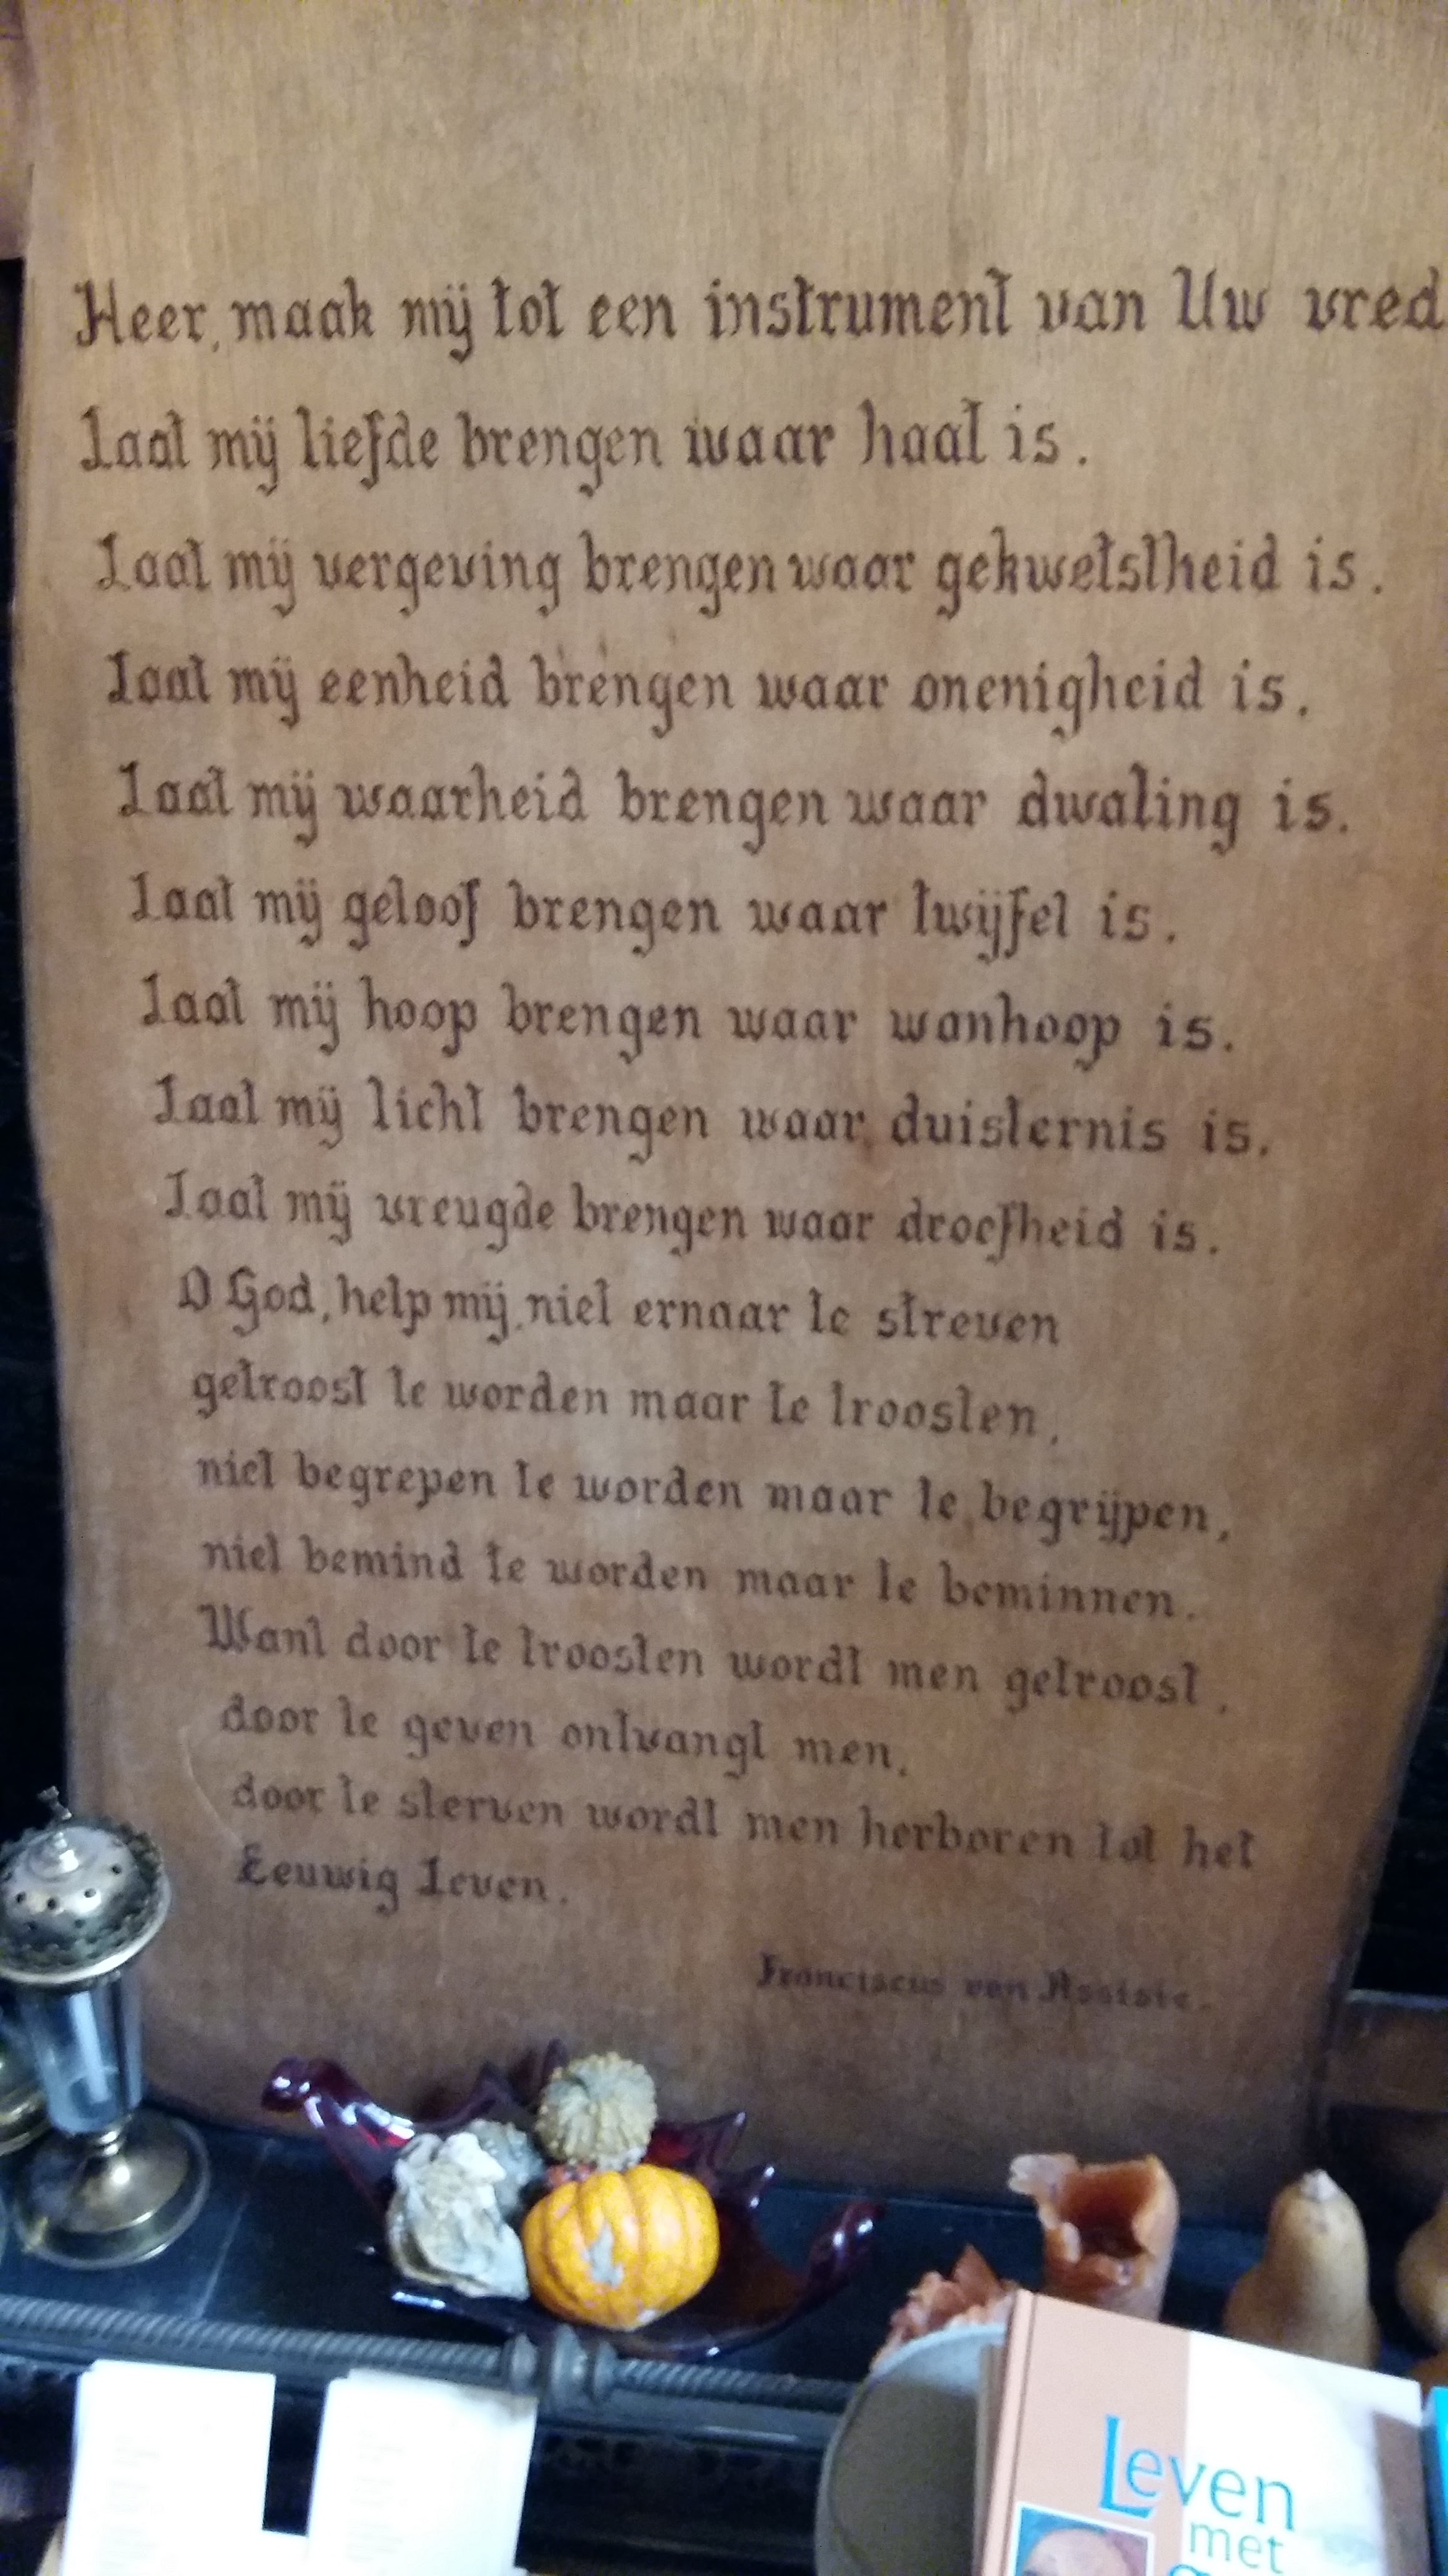 Heer, maak mij tot een instrument van Uw vred
Laat mij liefde brengen waar haat is.
Laat mij vergeving brengen waar gekwetstheid is.
Laat mij eenheid brengen waar onenigheid is.
Laat mij waarheid brengen waar dwaling is.
Laat mij geloof brengen waar twijfel is.
Laat mij hoop brengen waar wanhoop is.
Laat mij licht brengen waar duisternis is.
Laat mij vreugde brengen waar droefheid is.
O God, help mij niet ernaar te streven
getroost te worden maar te troosten,
niet begrepen te worden maar te begrijpen,
niet bemind te worden maar te beminnen.
Want door te troosten wordt men getroost,
door te geven ontvangt men,
door te sterven wordt men herboren tot het
Eeuwig Leven.
Franciscus van Assisie.
Leven
met